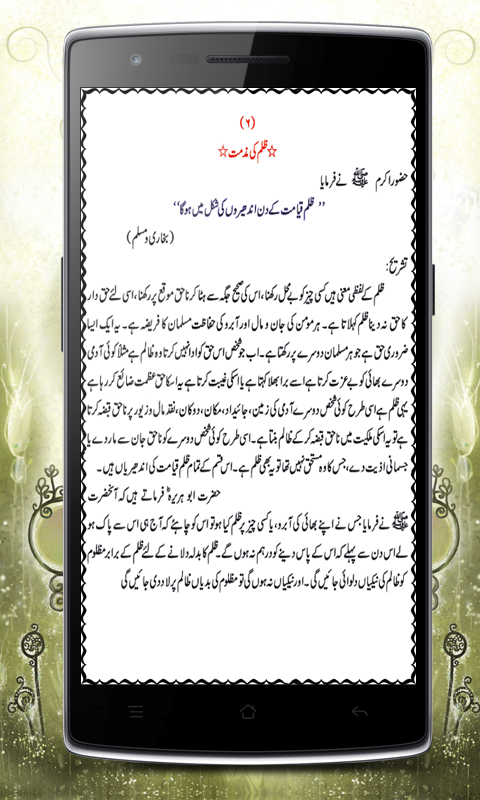 (۶)
☆ظلم کی مذمت☆
حضور اکرم ﷺ نے فرمایا
’’ ظلم قیامت کے دن اندھیروں کی شکل میں ہوگا‘‘
(بخاری و مسلم)
تشریح:
ظلم کے لفظی معنی ہیں کسی چیز کو بے محل رکھنا، اس کی صحیح جگہ سے ہٹا کر ناحق موقع پر رکھنا، اسی لئے حق دار
کا حق نہ دینا ظلم کہلاتا ہے۔ ہر مومن کی جان و مال اور آبرو کی حفاظت مسلمان کا فریضہ ہے۔ یہ ایک ایسا
ضروری حق ہے جو ہر مسلمان دوسرے پر رکھتا ہے۔ اب جو شخص اس حق کو ادا نہیں کرتا وہ ظالم ہے مثلاً کوئی آدمی
دوسرے بھائی کو بے عزت کرتا ہے اسے برا بھلا کہتا ہے یا اسکی غیبت کرتا ہے یہ اسکا حق عظمت ضائع کر رہا ہے
یہی ظلم ہے اسی طرح کوئی شخص دوسرے آدمی کی زمین، جائیداد، مکان، دوکان، نقد مال و زیور پر ناحق قبضہ کرتا
ہے تو یہ اسکی ملکیت میں ناحق قبضہ کر کے ظالم بنتا ہے۔ اسی طرح کوئی شخص دوسرے کو ناحق جان سے مار دے یا
جسمانی اذیت دے، جس کا وہ مستحق نہیں تھا تو یہ بھی ظلم ہے۔ اس قسم کے تمام ظلم قیامت کی اندھیریاں ہیں۔
حضرت ابو ہریرہؓ فرماتے ہیں کہ آنحضرت
ﷺ نے فرمایا جس نے اپنے بھائی کی آبرو، یا کسی چیز پر ظلم کیا ہو تو اس کو چاہئے کہ آج ہی اس سے پاک ہو
لے اس دن سے پہلے کہ اس کے پاس دینے کو درہم نہ ہوں گے۔ ظلم کا بدلہ دلانے کے لئے ظلم کے برابر مظلوم
کو ظالم کی نیکیاں دلوائی جائیں گی۔ اور نیکیاں نہ ہوں گی تو مظلوم کی بدیاں ظالم پر لاد دی جائیں گی